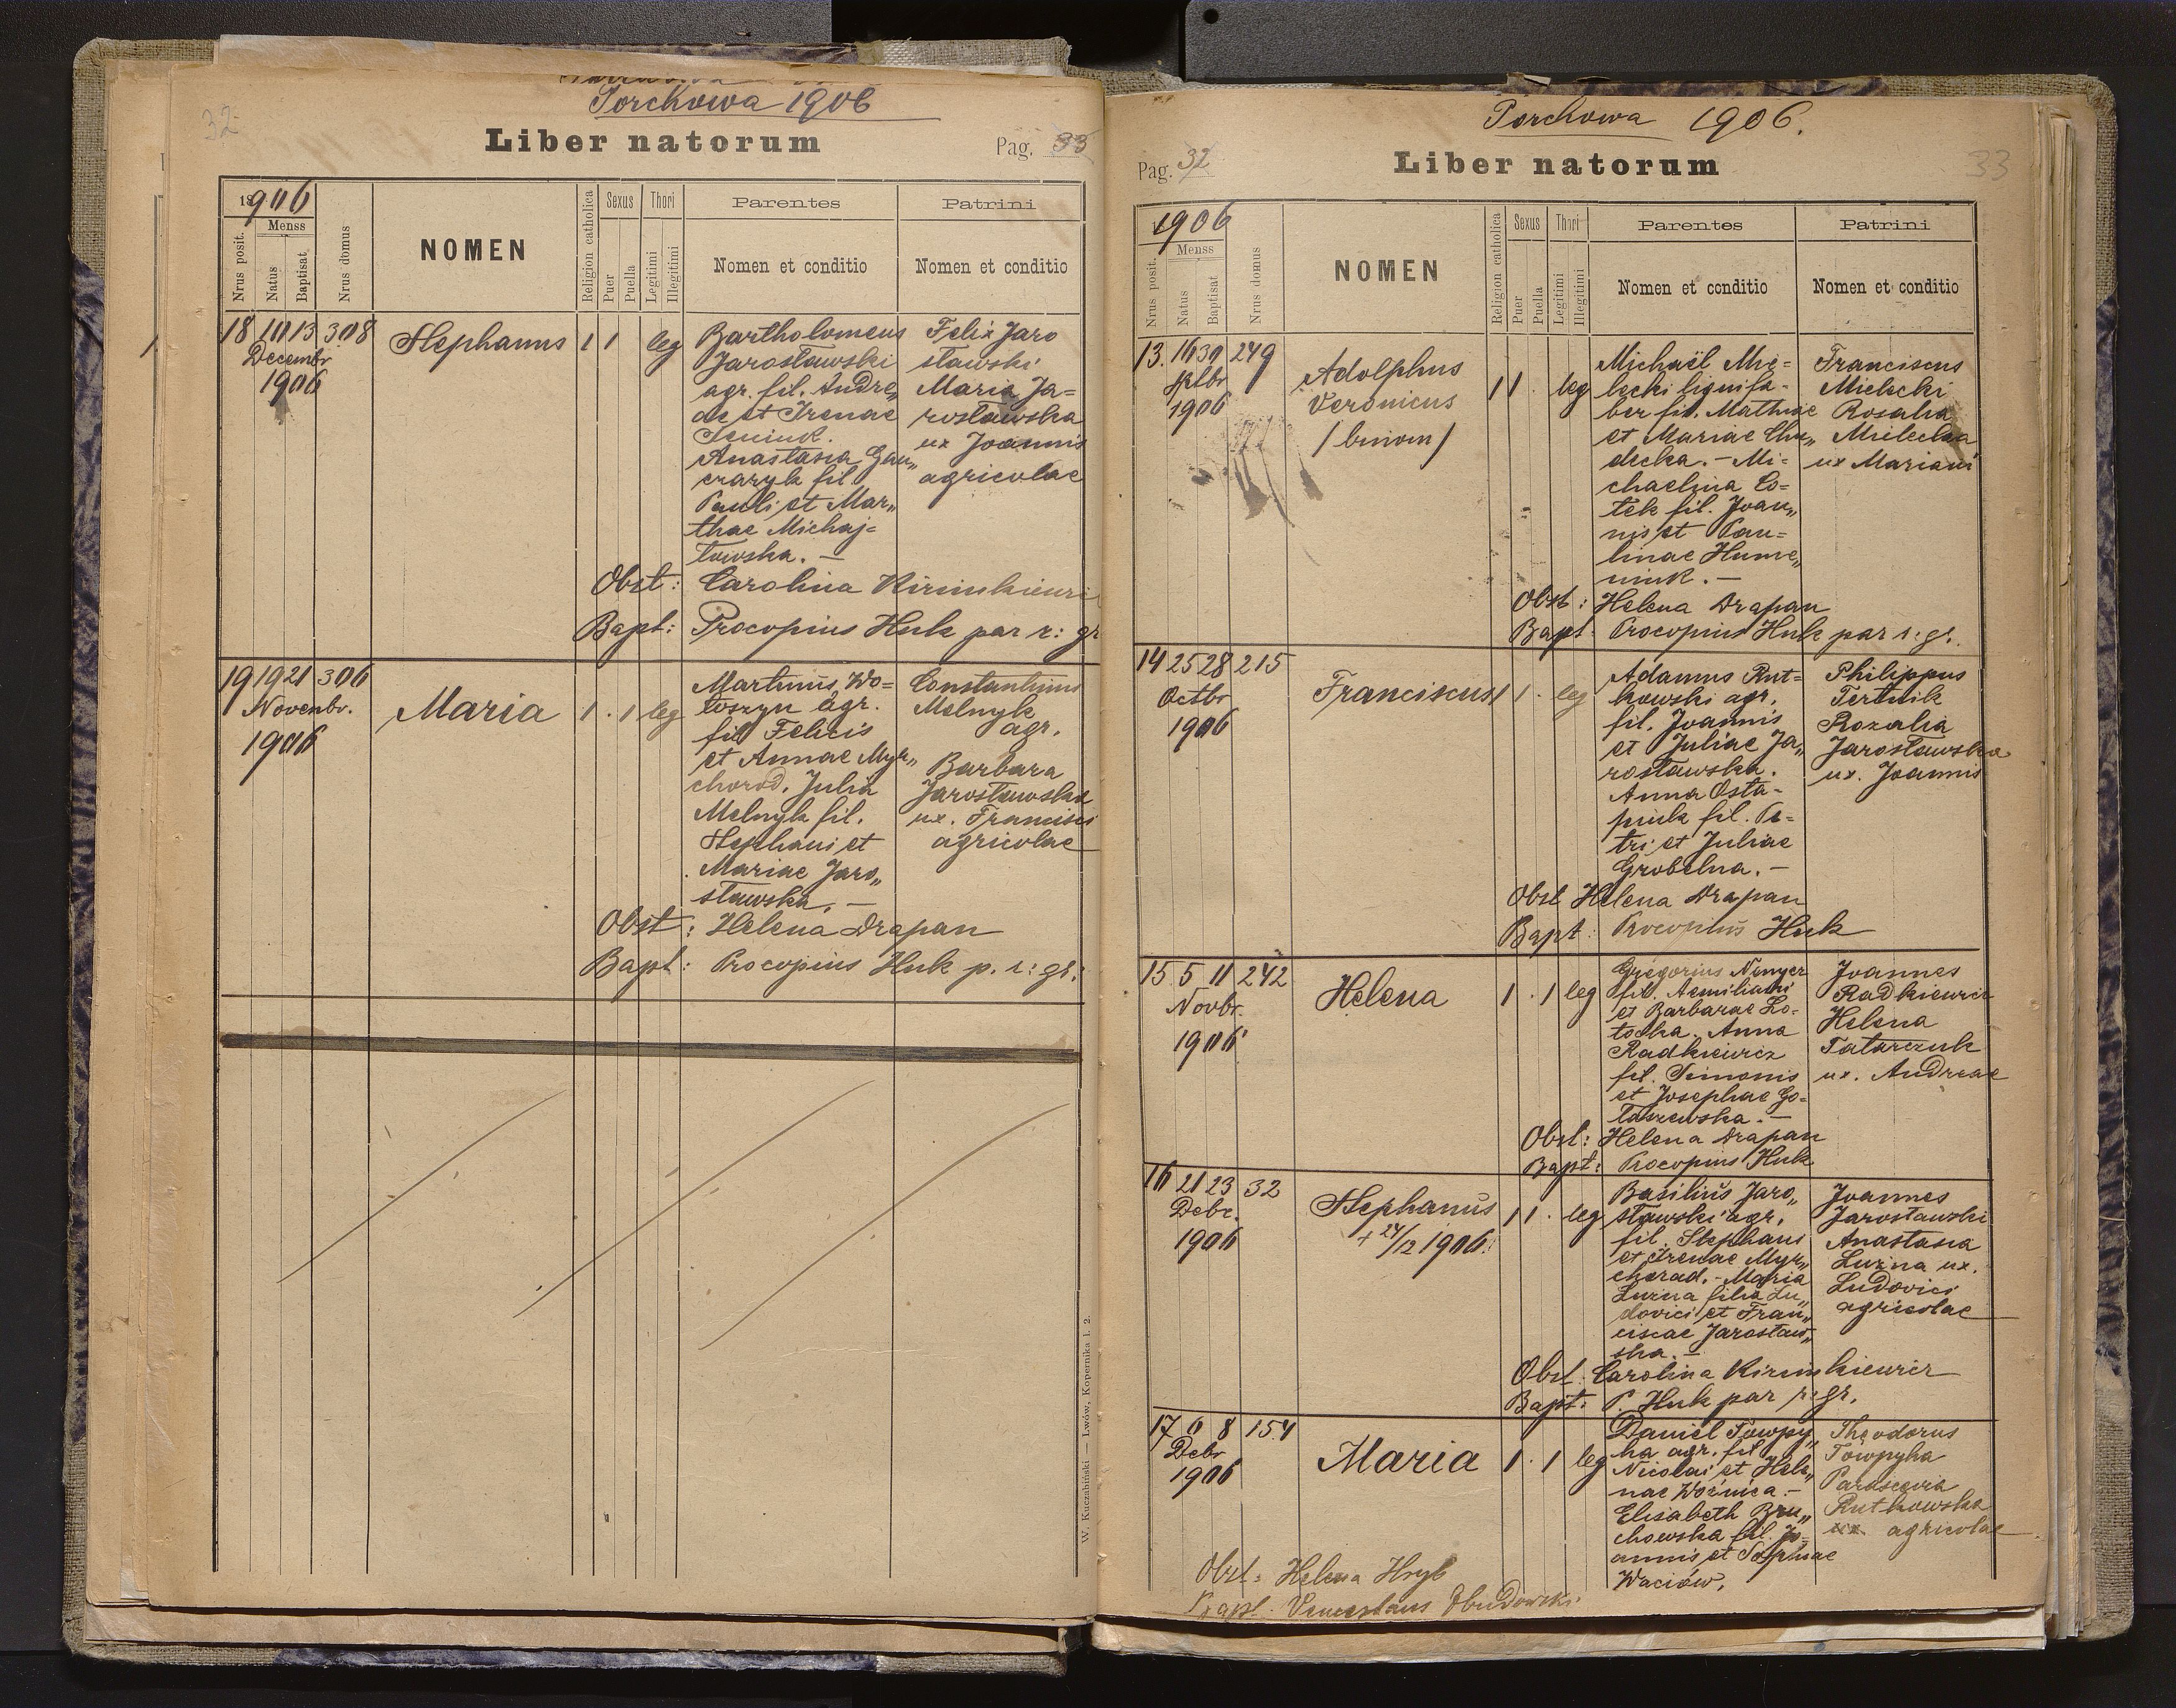 32
Torchowa 1906
Liber natorum
Pag. 33
1906
Menss
Nrus posit.
Natus
Baptisat
Nrus domus
NOMEN
Religion catholica
Sexus
Puer
Puella
Thori
Legitimi
Illegitimi
Parentes
Nomen et conditio
Patrini
Nomen et conditio
18 10 13 308
Decembr.
1906
Stephanus
1 1 leg
Bartholomeus
Jarosławski
agr. fil. Andre„
ae et Irenae
Anastasia Gon„
czaryk fil.
Pauli et Mar„
thae Michaj=
łowska. —
Felix Jaro
sławski
Maria Ja=
rosławska
ux Joannis
agricolae
Obst: Carolina Kirimkiewi
Bapt: Procopius Huk par r: gr
19 19 21 306
Novenbr.
1906
Maria
1 . 1 leg
Martinus Wo=
łoszyn agr.
fil Felicis
et Annae Myk„
chorod. Julia
Melnyk fil.
Stephani et
Mariae Jaro„
sławska. —
Constantinus
Melnyk
agr.
Barbara
Jarosławska
ux. Francisci
agricolae
Obst: Helena Drapan
Bapt: Procopius Huk p. r: gr:
W. Kuczabiński — Lwów, Kopernika l. 2.
Torchowa 1906.
Pag. 32
Liber natorum
33
1906
Menss
Nrus posit.
Natus
Baptisat
Nrus domus
NOMEN
Religion catholica
Sexus
Puer
Puella
Thori
Legitimi
Illegitimi
Parentes
Nomen et conditio
Patrini
Nomen et conditio
13. 16 30 249
1906
Adolphus
Veronicus
/binom/
1 1 . leg
Michaël Mie=
lecki lignifa-
ber fil. Mathiae
et Mariae Chu„
decka. - Mi=
chaelina Co=
tek fil. Joan„
nis et Pau=
linae Hume„
niuk. —
Franciscus
Mielecki
Rosalia
Mielecka
ux Mariani
Obst: Helena Drapan
Bapt. Procopius Huk par r: gr.
14 25 28 215
Octbr
1906
Franciscus
1 1 . leg
Adamus Rut=
kowski agr.
fil. Joannis
et Juliae Ja„
rosławska.
Anna Osta-
piuk fil. Pe=
tri et Juliae
Grobelna. —
Philippus
Tertnik
Rozalia
Jarosławska
ux. Joannis
Obst Helena Drapan
Bapt: Procopius Huk
15 5 11 242
Novbr.
1906
Helena
1 . 1 leg
Gregorius Nenyer
fil. Aemiliani
et Barbarae Lo-
tocka. Anna
Radkiewicz
fil. Simonis
et Josephae Go=
łaszewska. —
Joannes
Radkiewicz
Helena
Tatarczuk
ux. Andreae
Obst: Helena Drapan
Bapt: Procopius Huk
16 21 23 32
Debr.
1906
Stephanus
+ 24/12 1906.
1 1 . leg
Basilius Jaro„
sławski agr.
fil. Stephani
et Irenae Myk„
chorad. - Maria
Luzna filia Lu„
dovici et Fran„
ciscae Jarosław„
ska. —
Joannes
Jarosławski
Anastasia
Luzna ux.
Ludovici
agricolae
Obst. Carolina Kirimkiewicz
Bapt: P. Huk par r: gr.
17 6 8 154
Debr
1906
Maria
1 . 1 leg
Daniel Towpy„
ha agr. fil
Nicolai et Hele„
nae Woźnica. -
Elisabeth Bru„
chowska fil. Jo-
annis et Sophiae
Waciów.
Theodorus
Towpyha
Parascevia
Rutkowska
ux agricolae
Obst: Helena Hryb
Bapt. Venceslaus Obudowski